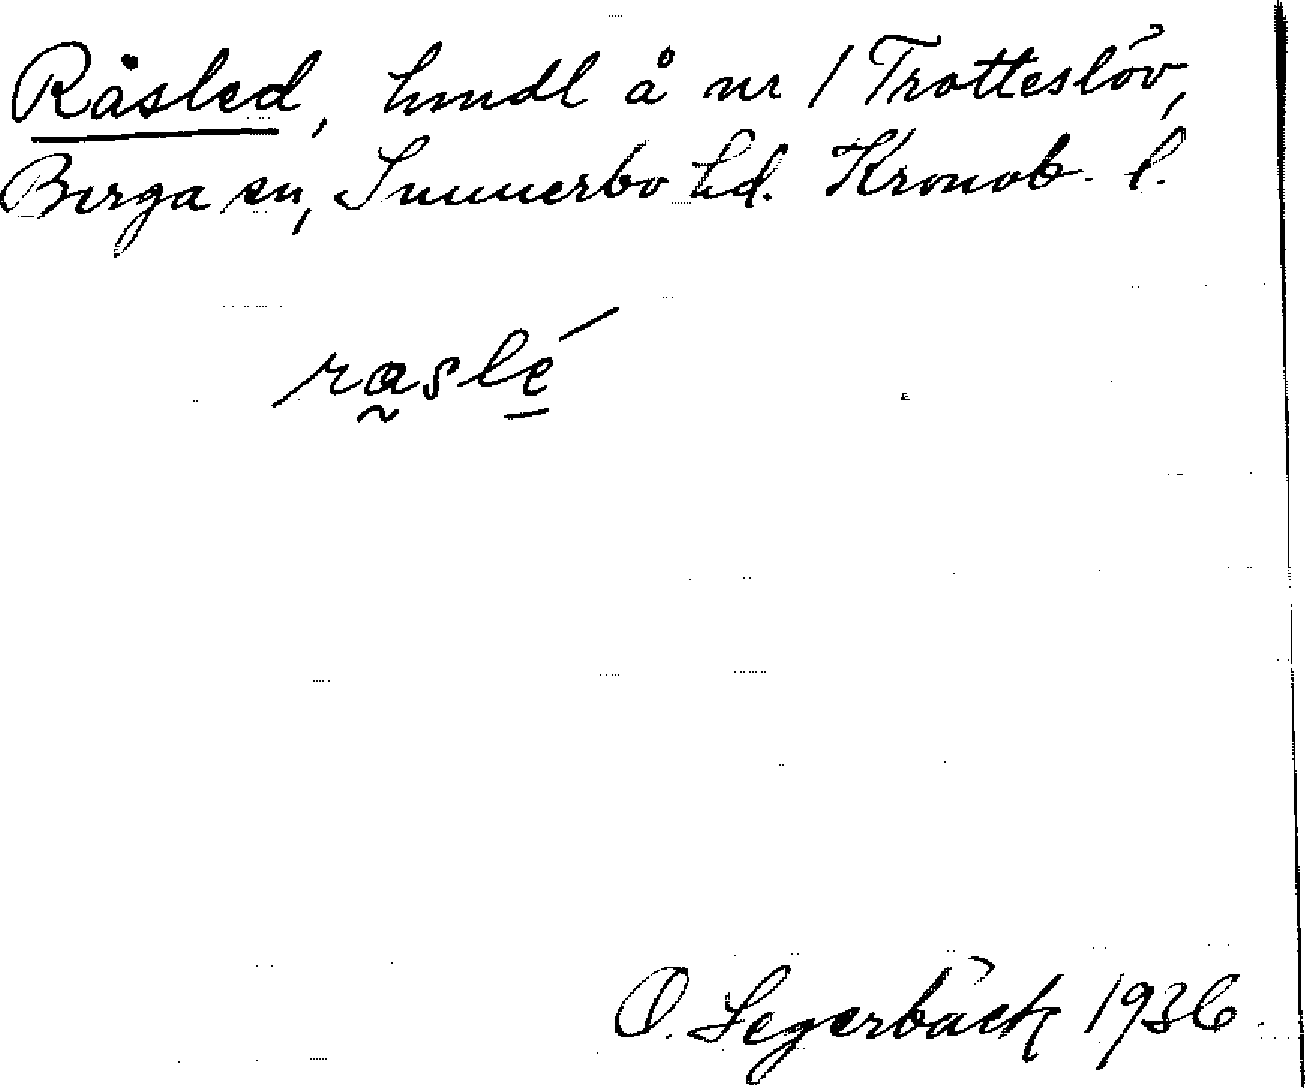 Råsled, hmdl å nr 1 Trotteslöv,
Berga sn, Sunnerbo hd. Kronob. l.
raslé
O. Segerbäck 1936